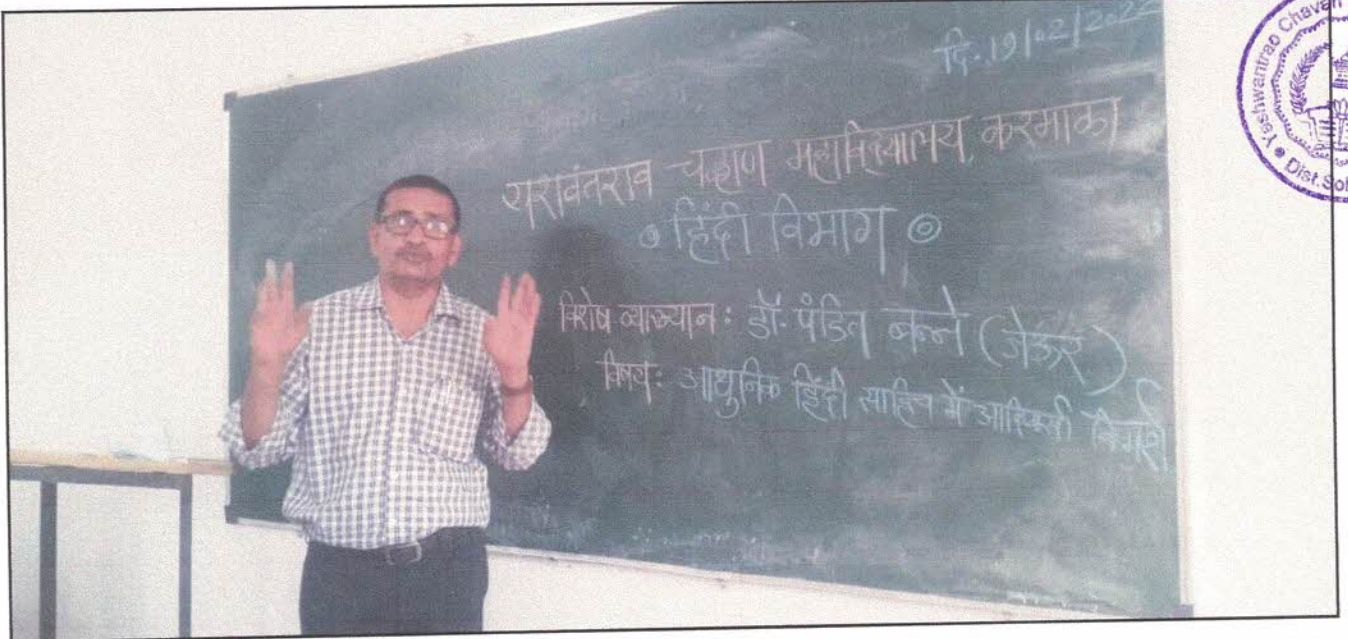 दि. 19/02/2022
यशवंतराव चव्हाण महाविद्यालय, करमाळा
हिंदी विभाग
विशेष व्याख्यान: डॉ. पंडित बन्ने (जेऊर)
विषय: आधुनिक हिंदी साहित्य में आदिवासी विमर्श
Yashwantrao Chavan
Dist.